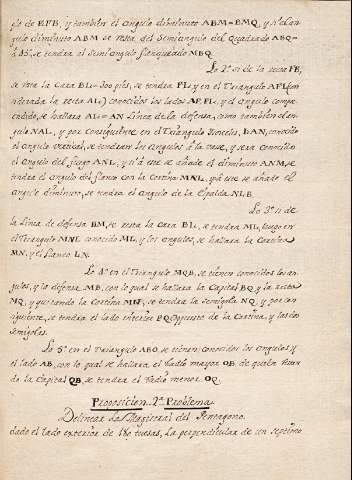 plo de EFB, y tambien el angulo diminuto ABM=BMQ, y si del an-
gulo diminuto ABM se resta del Semiangulo del Quadrado ABQ=
á 45, se tendrá el Semiangulo flanqueado MBQ.
Lo 2º si de la recta FB,
se resta la Cara BL=300 pies, se tendrá FL y en el Triangulo AFL (con
siderada la recta AL) conocidos los lados AF, FL, y el angulo compre-
hendido, se hallará AL=AN Linea de la defensa, como tambien el an-
gulo NAL, y por consiguiente en el Triangulo Isoceles, LAN, conocido
el Angulo vertical, se tendrán los Angulos á la vase, y será conocido
el Angulo del fuego ANL, y si á este se añade el diminuto ANM, se
tendrá el angulo del flanco con la Cortina MNL, y si á este se añade el
angulo diminuto, se tendrá el Angulo de la Espalda NLB.
Lo 3º si de
la Linea de defensa BM, se resta la Cara BL, se tendrá ML, luego en
el Triangulo MNL conocido ML, y los angulos, se hallará la Cortina
MN, y el flanco LN.
Lo 4º en el Triangulo MQB, se tienen conocidos los an-
gulos, y la defensa MB, con lo qual se hallará la Capital BQ y la recta
MQ, y quitando la Cortina MN, se tendrá la semigola NQ, y por con
siguiente, se tendrá el lado interior PQ Compuesto de la Cortina, y las dos
semigolas.
Lo 5º en el Triangulo ABO, se tienen conocidos los Angulos y
el lado AB, con lo qual se hallará el Radio mayor OB de quien
de la Capital QB, se tendrá el Radio menor OQ.
Proposicion 2ª Problema
Delinear la Magistral del Pentagono
dado el lado exterior de 180 tuesas, la perpendicular de un septimo